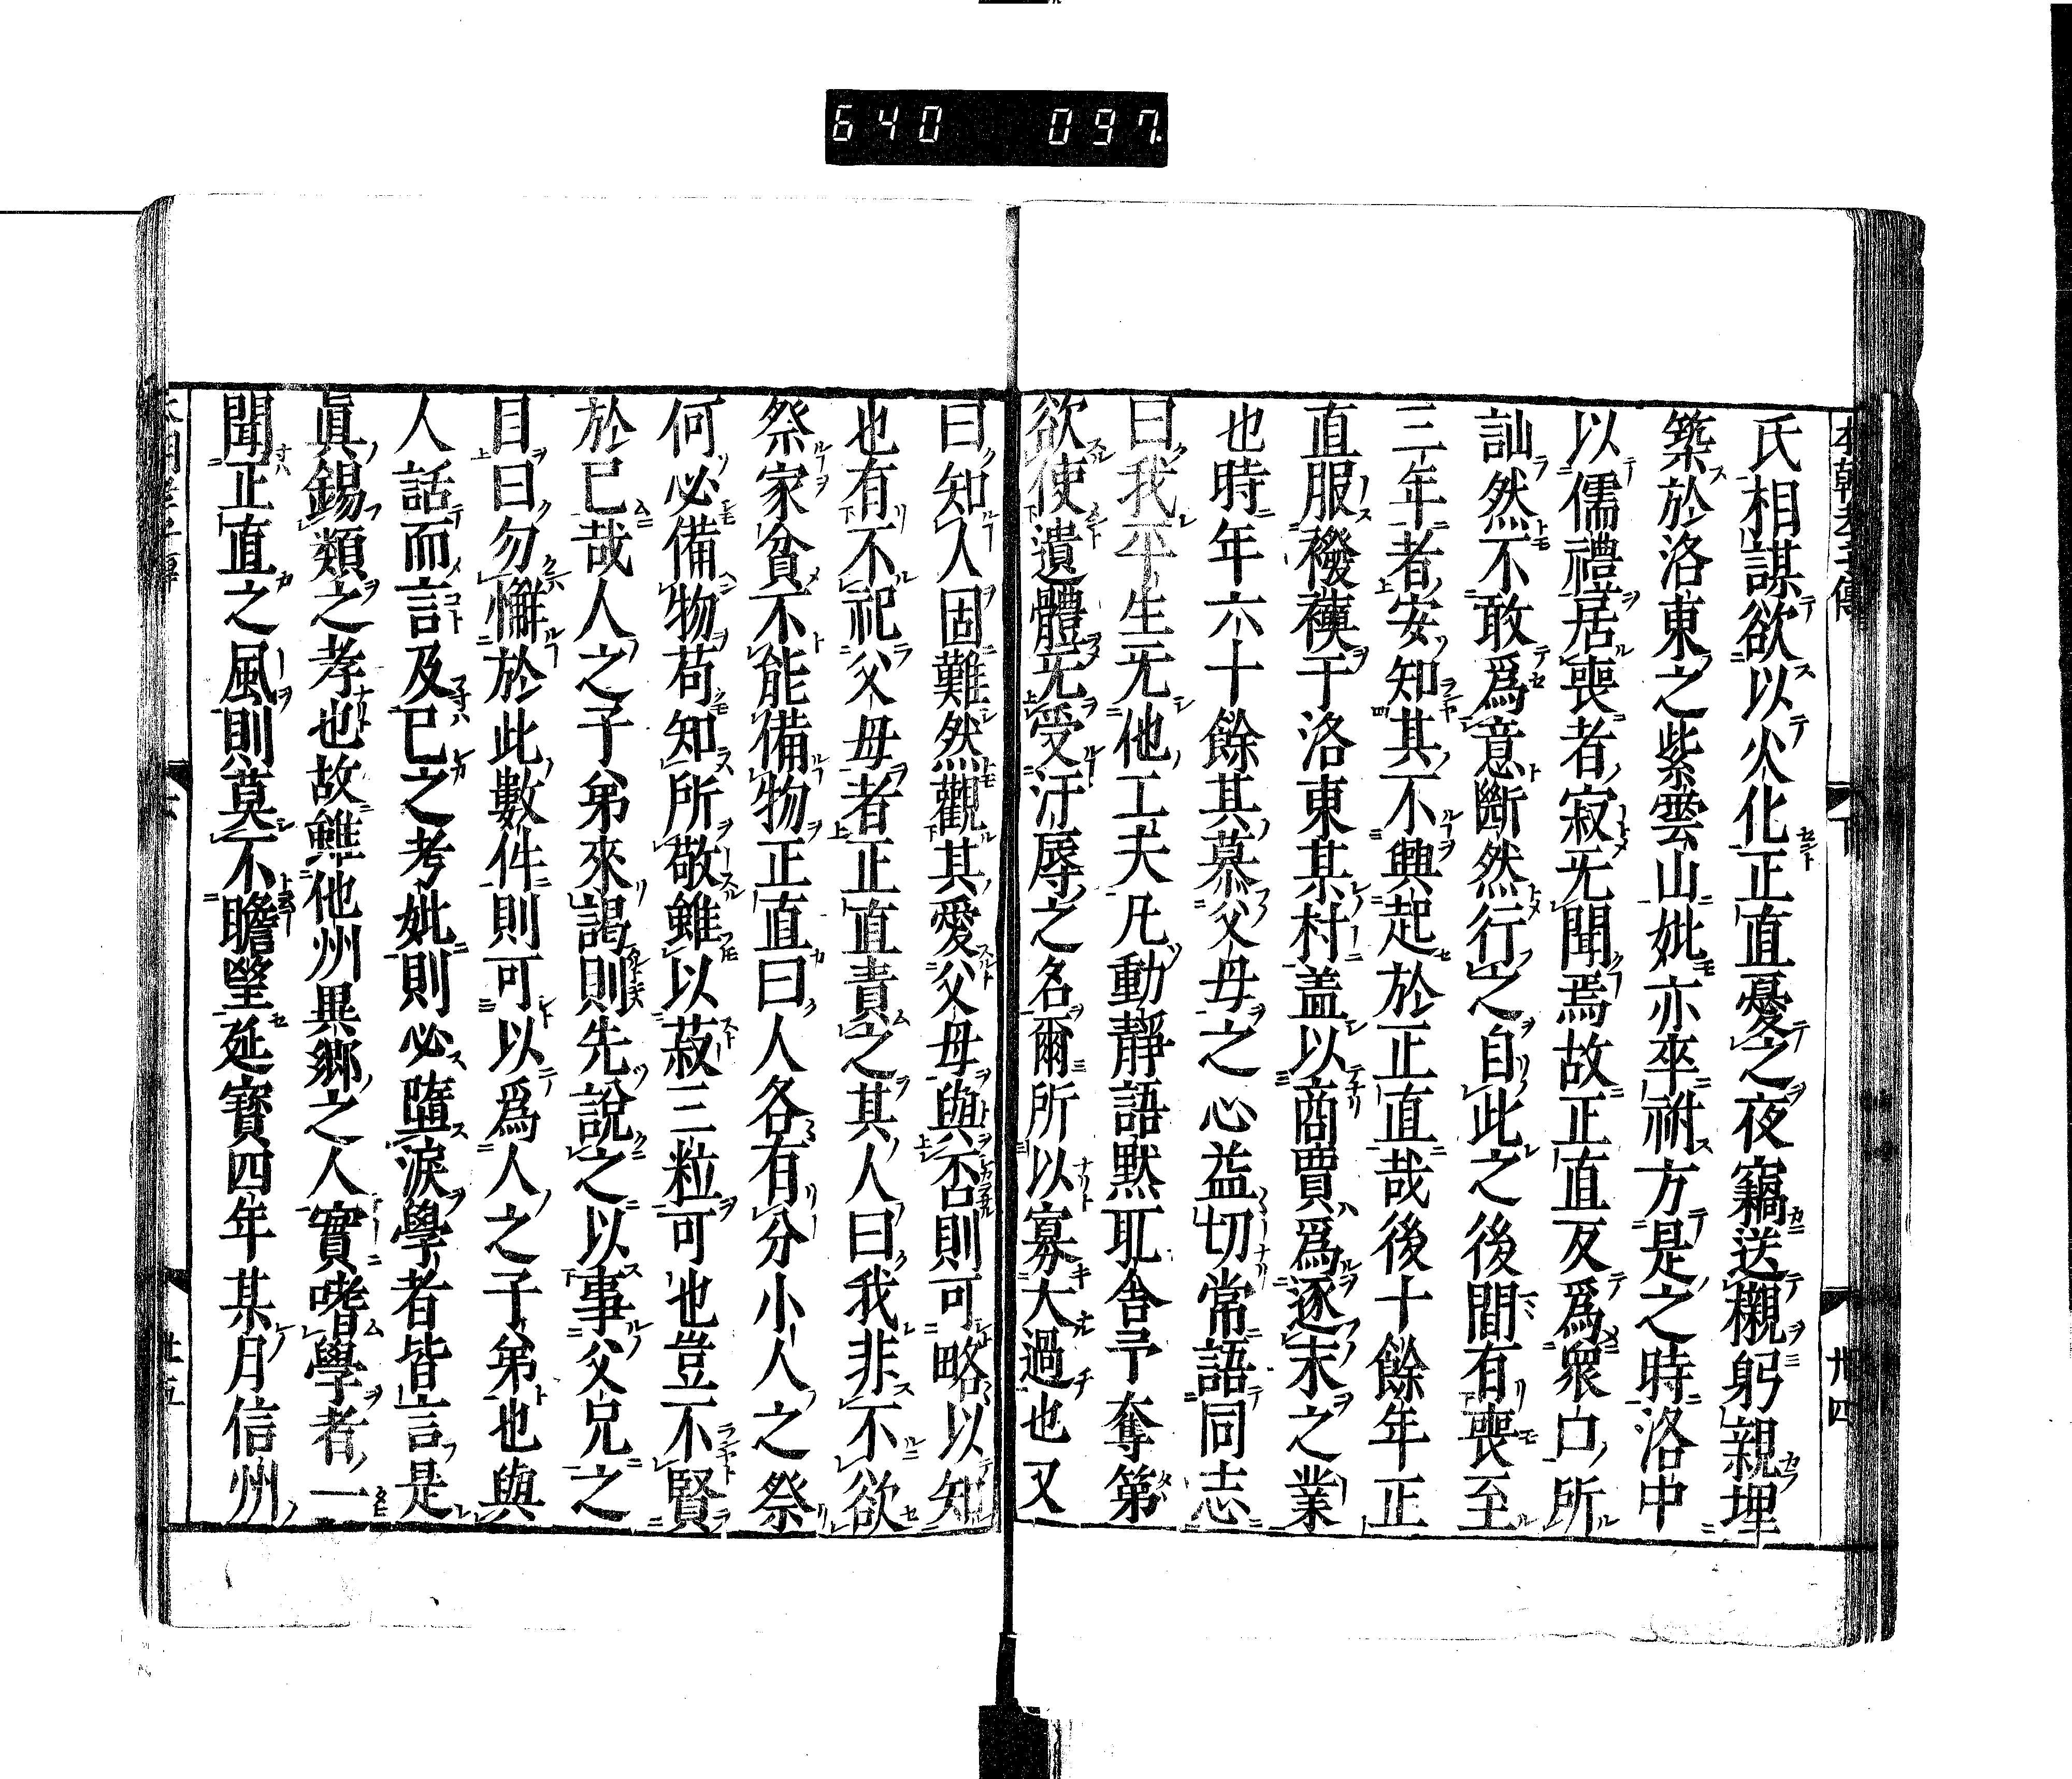 640 097
本朝孝子傳 下 卅四
氏相謀欲以火化正直憂之夜竊送櫬躬親埋
築於洛東之紫雲山妣亦卒祔方是之時洛中
以儒禮居喪者寂无聞焉故正直反爲衆口所
訕然不敢爲意斷然行之自此之後間有喪至
三年者安知其不興起於正直哉後十餘年正
直服襏襫于洛東某村盖以商賈爲逐末之業
也時年六十餘其慕父母之心益切常語同志
曰我平生无他工夫凡動靜語默取舍予奪第
欲使遺體无受汙辱之名爾所以寡大過也又
曰知人固難然觀其愛父母與否則可略以知
也有不祀父母者正直責之其人曰我非不欲
祭家貧不能備物正直曰人各有分小人之祭
何必備物苟知所敬雖以菽三粒可也豈不賢
於已哉人之子弟來謁則先說之以事父兄之
目曰勿懈於此數件則可以爲人之子弟也與
人話而言及已之考妣則必墮淚學者皆言是
眞錫類之孝也故雖他州異鄉之人實嗜學者一
聞正直之風則莫不瞻望延寶四年某月信州